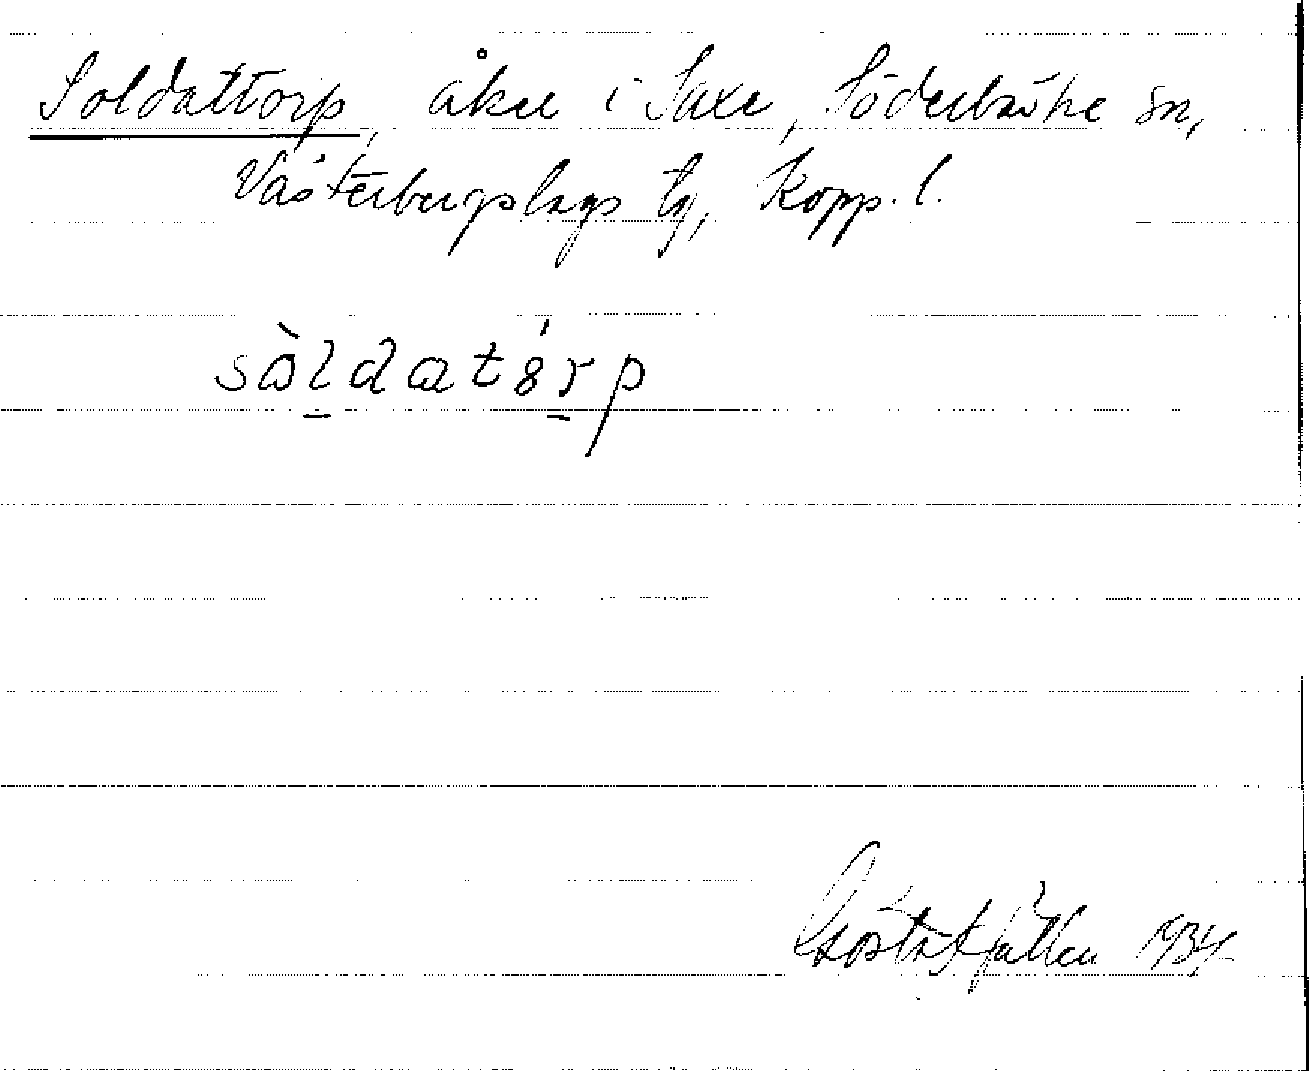 Soldattorp, åker i Saxe, Söderbärke sn,
Västerbergslags tg, Kopp. l.
sòldatórp
Gösta Kjällén 1934